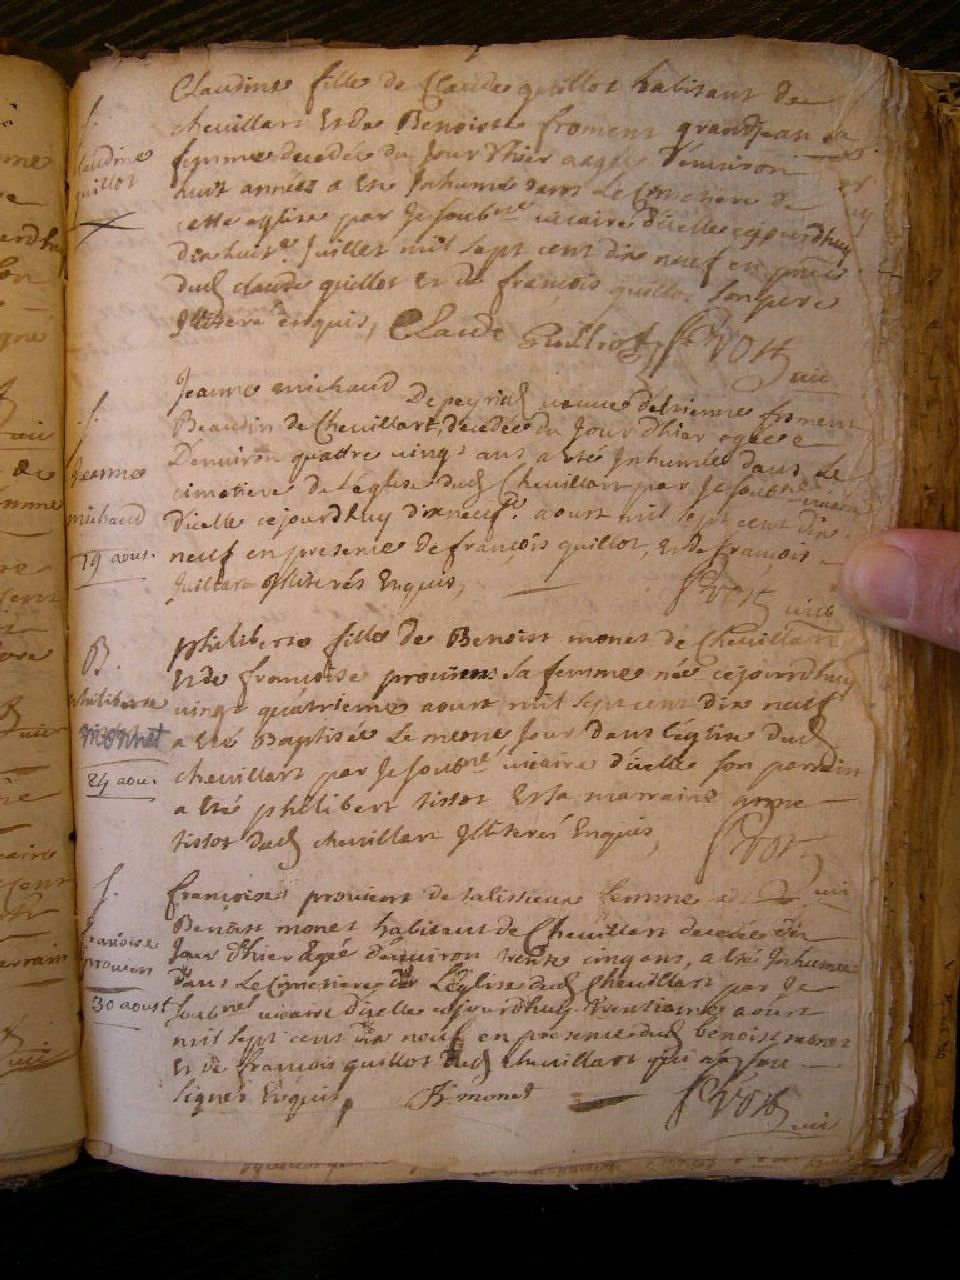 Claudine fille de Claude quillot habitant de
chevillart Et de Benoiste froment grandjean sa
femme decedée du Jour d'hier aagée d'environ
huit années a Eté Inhumé dans Le Cimetiere de
cette eglise par Je soubné vicaire d'icelle cejourdhuy
dixhuite Juillet mil sept cent dix neuf en pñce
dud Claude quillot Et de françois quillot son pere
Illiteré enquis, Claude Guilliot
vic
S.
Claudine
quillot
Jeanne michaud De peyriat veuve d'Etienne froment
Beaudin de Chevillart, decedée du Jour d'hier agée
D'environ quattre vingt ans a Eté Inhumée dans Le
cimetiere de L'eglise dud Chevillart par Je soubné vicaire
D'icelle cejourdhuy dixneufe aoust mil sept cent dix
neuf en presence de françois quillot, Et de françois
Juillart Illiterés Enquis,
vic
S.
Jeanne
michaud
19 aoust.
philiberte fille de Benoist monet de Chevillart
Et de françoise provient sa femme née cejourdhuy
vingt quatrieme aoust mil sept cent dix neuf
a Eté Baptisée Le meme Jour dans L'eglise dud
chevillart par Je soubné vicaire d'icelle son parrain
a Eté philibert tissot Et sa marraine anne
tissot dud chevillart Illiterés Enquis,
vic
B.
philiberte
monnet
24 aous.
françoise provient de talissieux femme
Benoist monet habitant de Chevillart decedée du
Jour d'hier Agée d'environ trente cinq ans, a Eté Inhumée
dans Le Cimetiere de L'Eglise dud Chevillart par Je
soubné vicaire d'icelle cejourdhuy trentieme aoust
mil sept cent dix neuf en presence dud benoist monet
Et de françois quillot dud Chevillart qui n'a sceu
signer Enquis, B. monet
vic
S.
francoise
provient
30 aoust